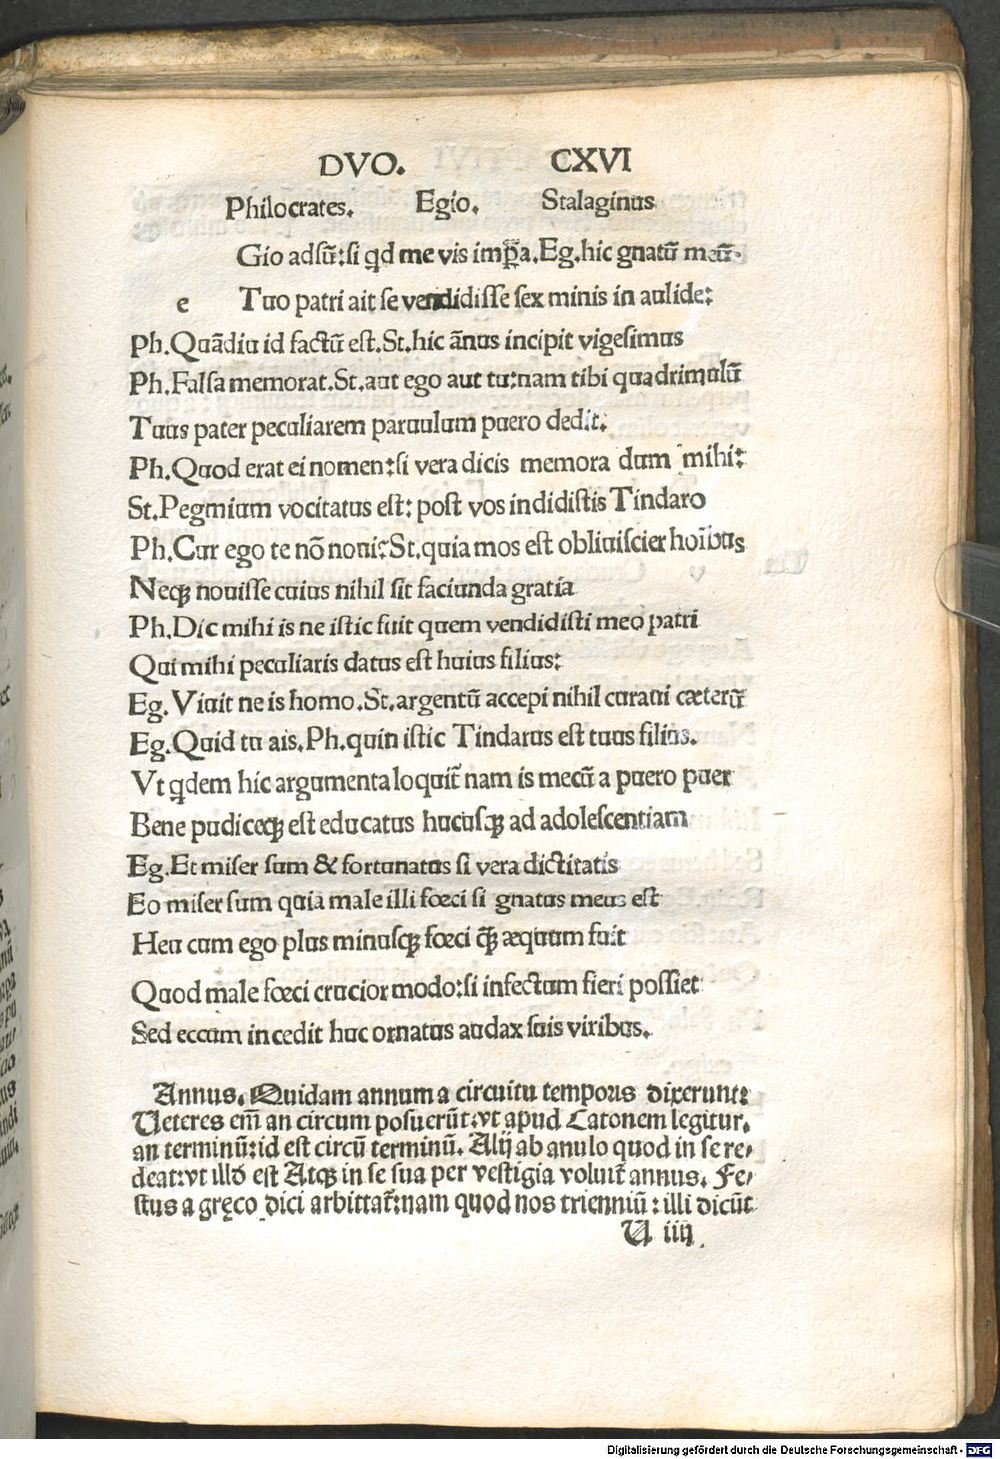 DVO. CXVI
Philocrates. Egio. Stalaginus
Gio adsū:si qd me vis imp̄a.Eg.hic gnatū meū.
e Tuo patri ait se vendidisse sex minis in aulide:
Ph.Quādiu id factū est.St.hic ānus incipit vigesimus
Ph.Falsa memorat.St.aut ego aut tu:nam tibi quadrimulū
Tuus pater peculiarem paruulum puero dedit:
Ph.Quod erat ei nomen:si vera dicis memora dum mihi:
St.Pegmium vocitatus est: post vos indidistis Tindaro
Ph.Cur ego te nō noui:St.quia mos est obliuiscier hoībus
Neqꝫ nouisse cuius nihil sit faciunda gratia
Ph.Dic mihi is ne istic fuit quem vendidisti meo patri
Qui mihi peculiaris datus est huius filius:
Eg. Viuit ne is homo.St.argentū accepi nihil curaui cæterū
Eg.Quid tu ais.Ph.quin istic Tindarus est tuus filius.
Vt qdem hic argumenta loquit̄ nam is mecū a puero puer
Bene pudiceqꝫ est educatus hucusqꝫ ad adolescentiam
Eg.Et miser sum & fortunatus si vera dictitatis
Eo miser sum quia male illi fœci si gnatus meus est
Heu cum ego plus minusqꝫ fœci q̄ꝫ æquum fuit
Quod male fœci crucior modo:si infectum fieri possiet
Sed eccum incedit huc ornatus audax suis viribus.
Annus. Quidam annum a circuitu temporis dixerunt:
Ueteres em̄ an circum posuerūt:vt apud Catonem legitur.
an terminū:id est circū terminū. Alij ab anulo quod in se re⸗
deat:vt illđ est Atqꝫ in se sua per vestigia voluit̄ annus. Fe⸗
stus a gręco dici arbittat̄:nam quod nos trienniū: illi dicūt
U iiij
Digitalisierung gefördert durch die Deutsche Forschungsgemeinschaft - DFG